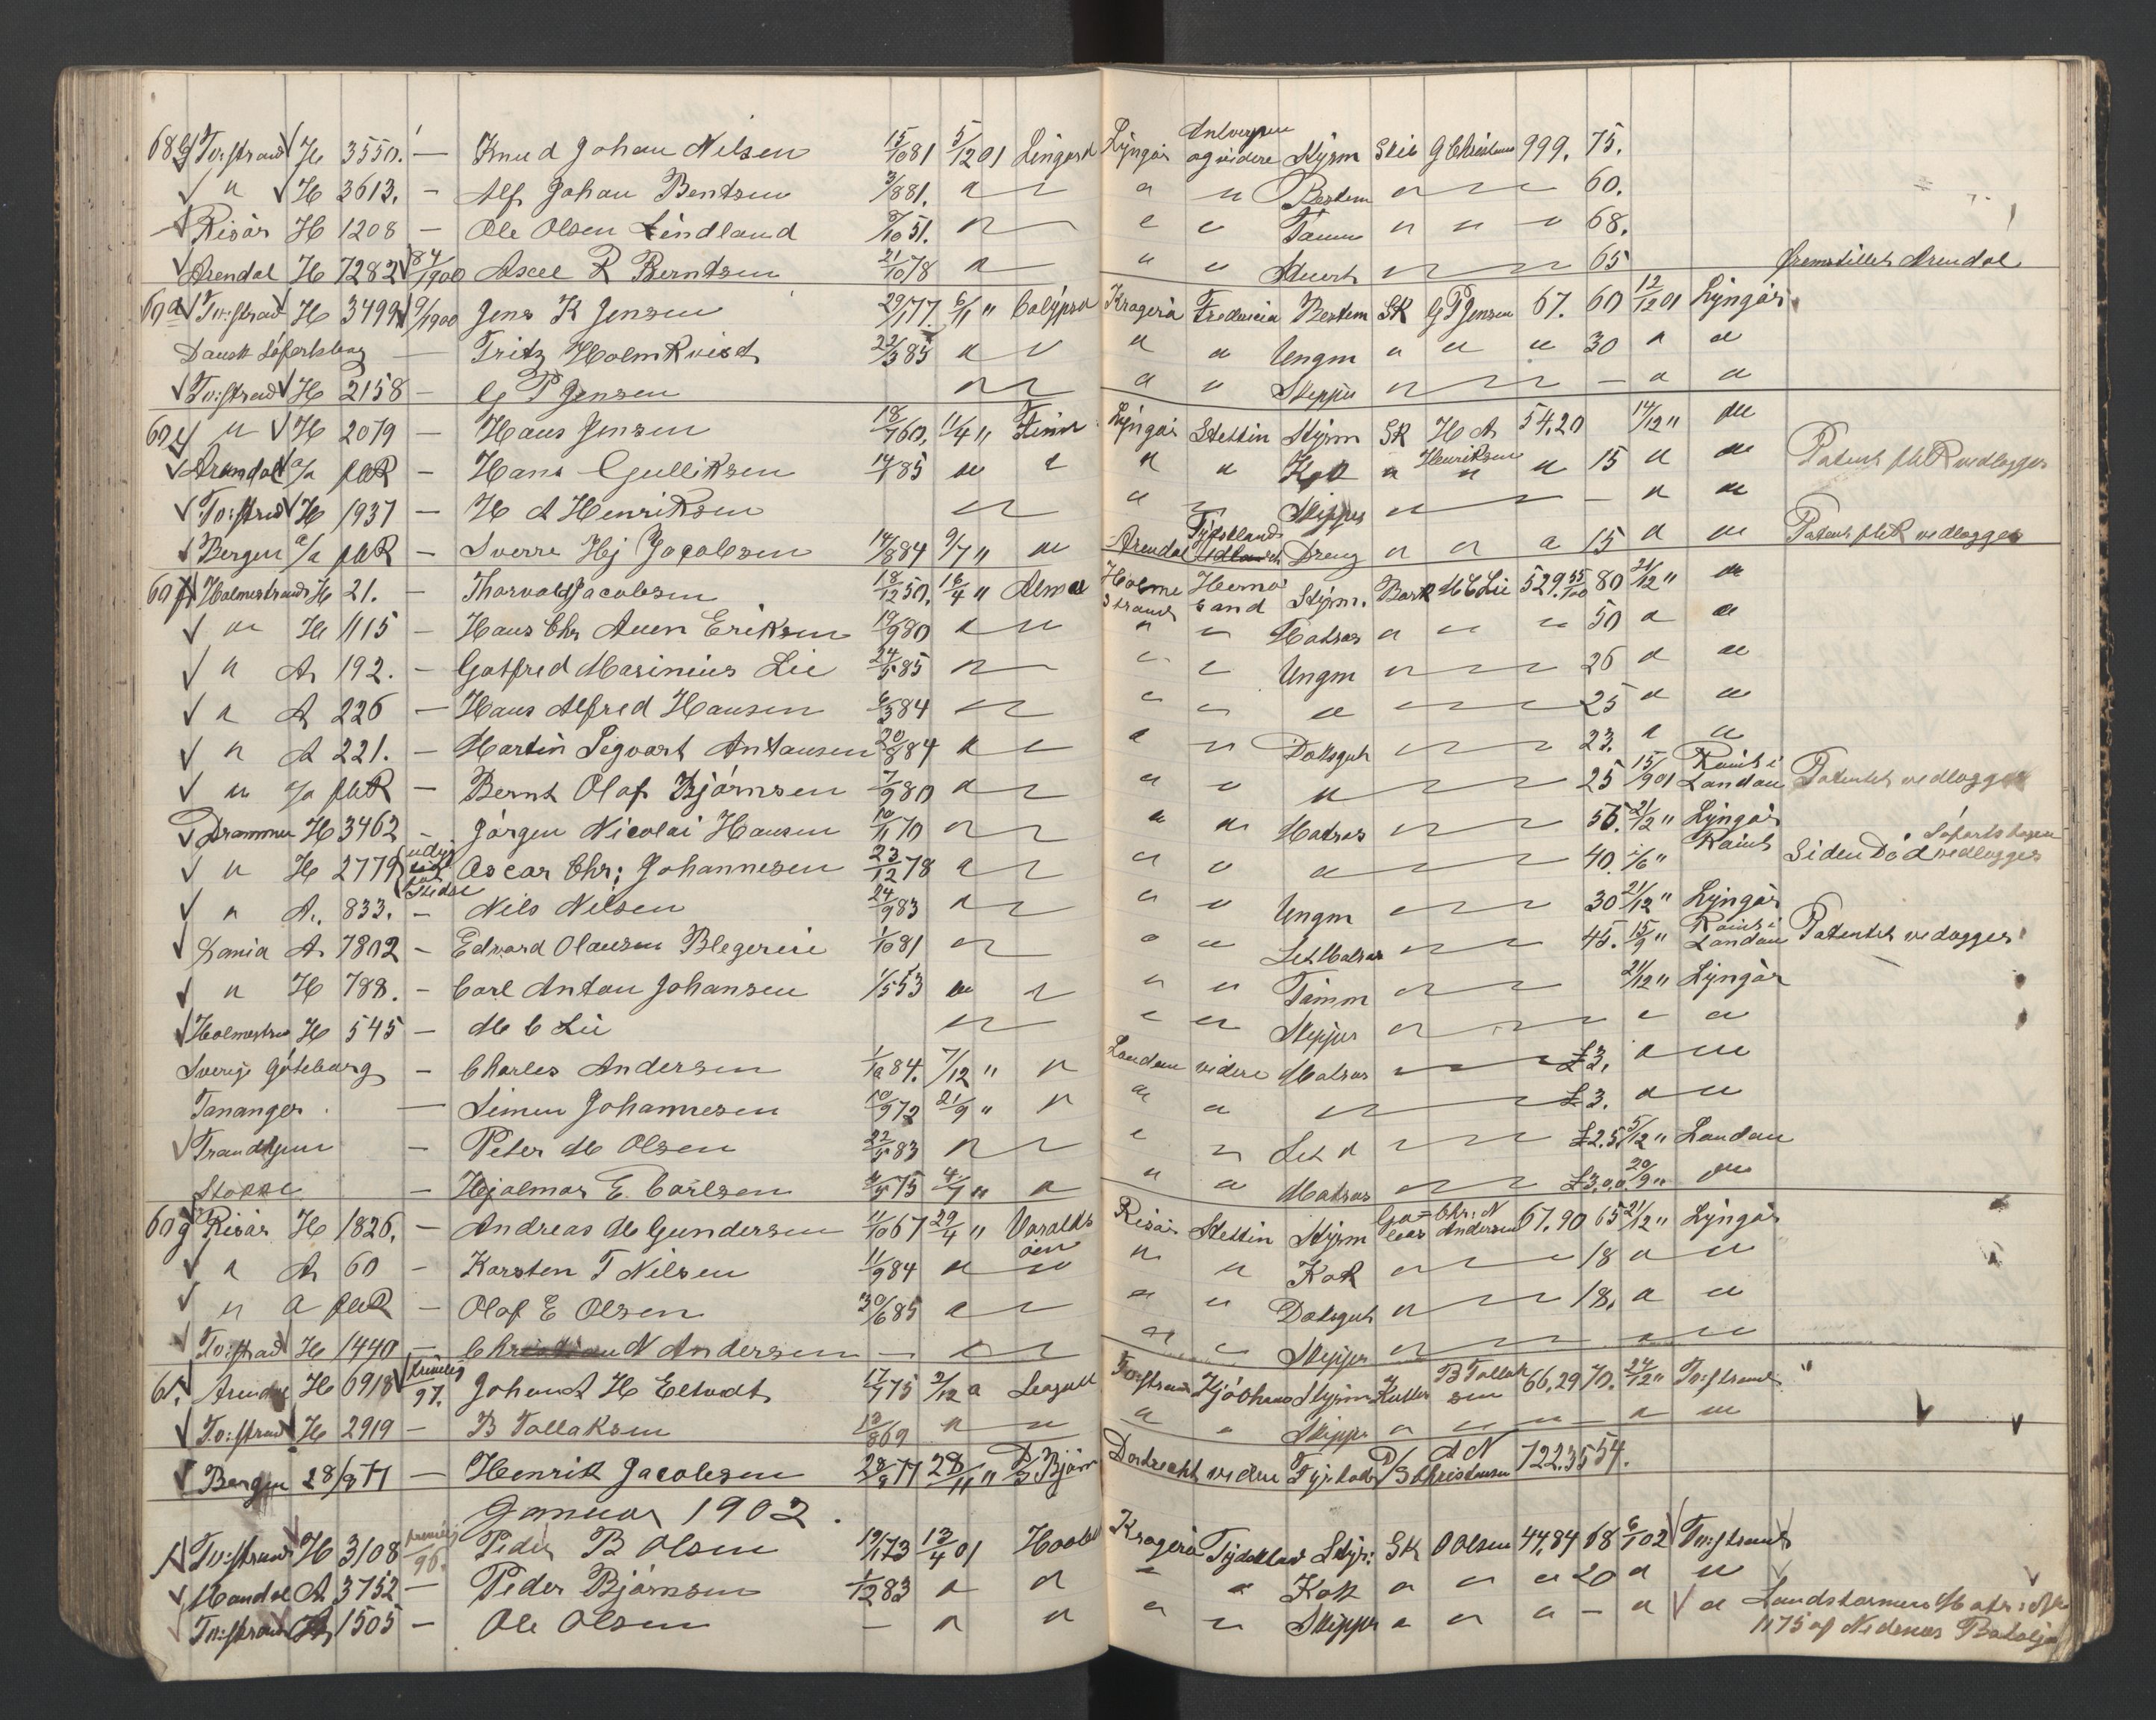 Tv:strand H 3550. — Knud Johan Nilsen 15/10 81 5/12 01 Lingard Lyngör Antwerpen og videre Styrm Skib G Christensen 999. 75.
" H 3613. — Alf Johan Bentsen 3/8 81. " Bestm " 60.
Risör H 1208 — Ole Olsen Lindland 51. " Tømm " 68.
Arendal H 7282 84/1900 Axel R Berntsen 21/10 78 " Stuert " 65 Fremstillet Arendal
Tv:strand H 3499 9/1900 Jens K Jensen 29/1 77. 6/11 " Calypso Kragerö Fredericia Bestm SK G P Jensen 67. 60 12/12 01 Lyngör
Dansk Søfartsbog — Fritz Holmkvist 22/3 85 " " Ungm " " " 30 " "
Tv:strand H 2158 — G P Jensen " " Skipper " — " "
" H 2079 — Hans Jensen 18/7 60. 11/4 " Finn Lyngör Stettin Styrm SK H A 54,20 14/12 " "
Arendal a/a pkR — Hans Gulliksen 14/ 85 " " Kok " Henriksen " 15 " " Patent pkR vedlægges
Tv:strand H 1937 — H A Henriksen " " Skipper " — " "
Bergen a/a pkR — Sverre Hj Jacobsen 14/8 84 9/7 " " Arendal Tydskland Dreng " " " 15 " " Patent pkR vedlægges
Holmestrand H 21. — Thorvald Jacobsen 18/12 50. 18/4 " Alma Holmestrand Hernösand Styrm. Bark M C Lie 529.55/100 80 21/12 " "
" H 1115 — Hans Chr Auen Eriksen 19/9 80 " " Matros " " " 50 " "
" A 192. — Gotfred Marinius Lie 24/5 85 " " Ungm " 26 " "
" A 226 — Hans Alfred Hansen 6/3 84 " " " 25 " "
" A 221. — Martin Sigvart Antonsen 20/ 84 " " Dæksgut " 23. " "
" a/a pkR — Bernt Olaf Bjørnsen 7/9 80 " " " 25 15/9 01 Rømt i London Patentet vedlægges
Drammen H 3462 — Jørgen Nicolai Hansen 10/11 70 " " Matros " 55. 21/12 " Lyngör
" H 2779 Oscar Chr: Johannesen 23/12 78 " " " 40. 1/6 " Rømt Siden Död Søfartsbogen vedlægges
" A. 833. — Nils Nilsen 24/9 83 " " Ungm " 30 21/12 " Lyngör
Dania A 7802 — Edvard Olausen Blegerie 1/10 81 " " Let Matros " 45. 15/9 " Rømt i London Patentet vedlægges
" H 788. — Carl Anton Johansen 1/5 53 " " Tømm " 21/12 " Lyngör
Holmestrand H 545 — M C Lie " " Skipper " " "
Sverig Göteborg — Charles Andersen 84. 7/12 " " London videre Matros £3. " "
Tananger — Simen Johannesen 10/9 72 21/9 " " " £3. " "
Trondhjem — Peter M Olsen 22/5 83 " " Let " £2.5 5/12 " London
Stokke — Hjalmar E. Carlsen 75 4/7 " " " " Matros £3.0.0 20/9 " "
Risör H 1826. — Andreas M Gundersen 11/10 67 29/4 " Varaldsöen Risör Stettin Styrm Galeas Chr: N Andersen 67.90 65 21/12 " Lyngör
" A 60 — Karsten T Nilsen 11/9 84 " " Kok " 18 " "
" A pkR — Olaf E Olsen 30/6 85 " " Dæksgut " 18. " "
Tv:strand H 1440 — Christian N Andersen — " " Skipper " "
61. Arendal H 6918 97. Johan A H Eltvedt 17/ 75 2/12 " Seagull Tv:strand Styrm Kutter B Tollaksen 66,29 70. 24/12 " Tv:strand
Tv:strand H 2919 — B Tollaksen 10/8 69 " " Skipper " "
Bergen 28/9 77 — Henrik Jacobsen 28/9 77 28/11 " D/S Bjørn Dordrecht videre Fyrbøder D/S A N Christensen 722.35 54.
Januar 1902.
Tv:strand H 3108 96. Peder B Olsen 19/1 73 13/4 01 Kragerö Tydskland Styr: SK O Olsen 44,84 68 6/1 02 Tv:strand
Mandal A 3752 — Peder Bjørnsen 1/12 83 " " Kok " " " 20 " "
Tv:strand A 1505 — Ole Olsen — " " Skipper " " " — " " Landstormen
1175 af Nedenæs Bataljon